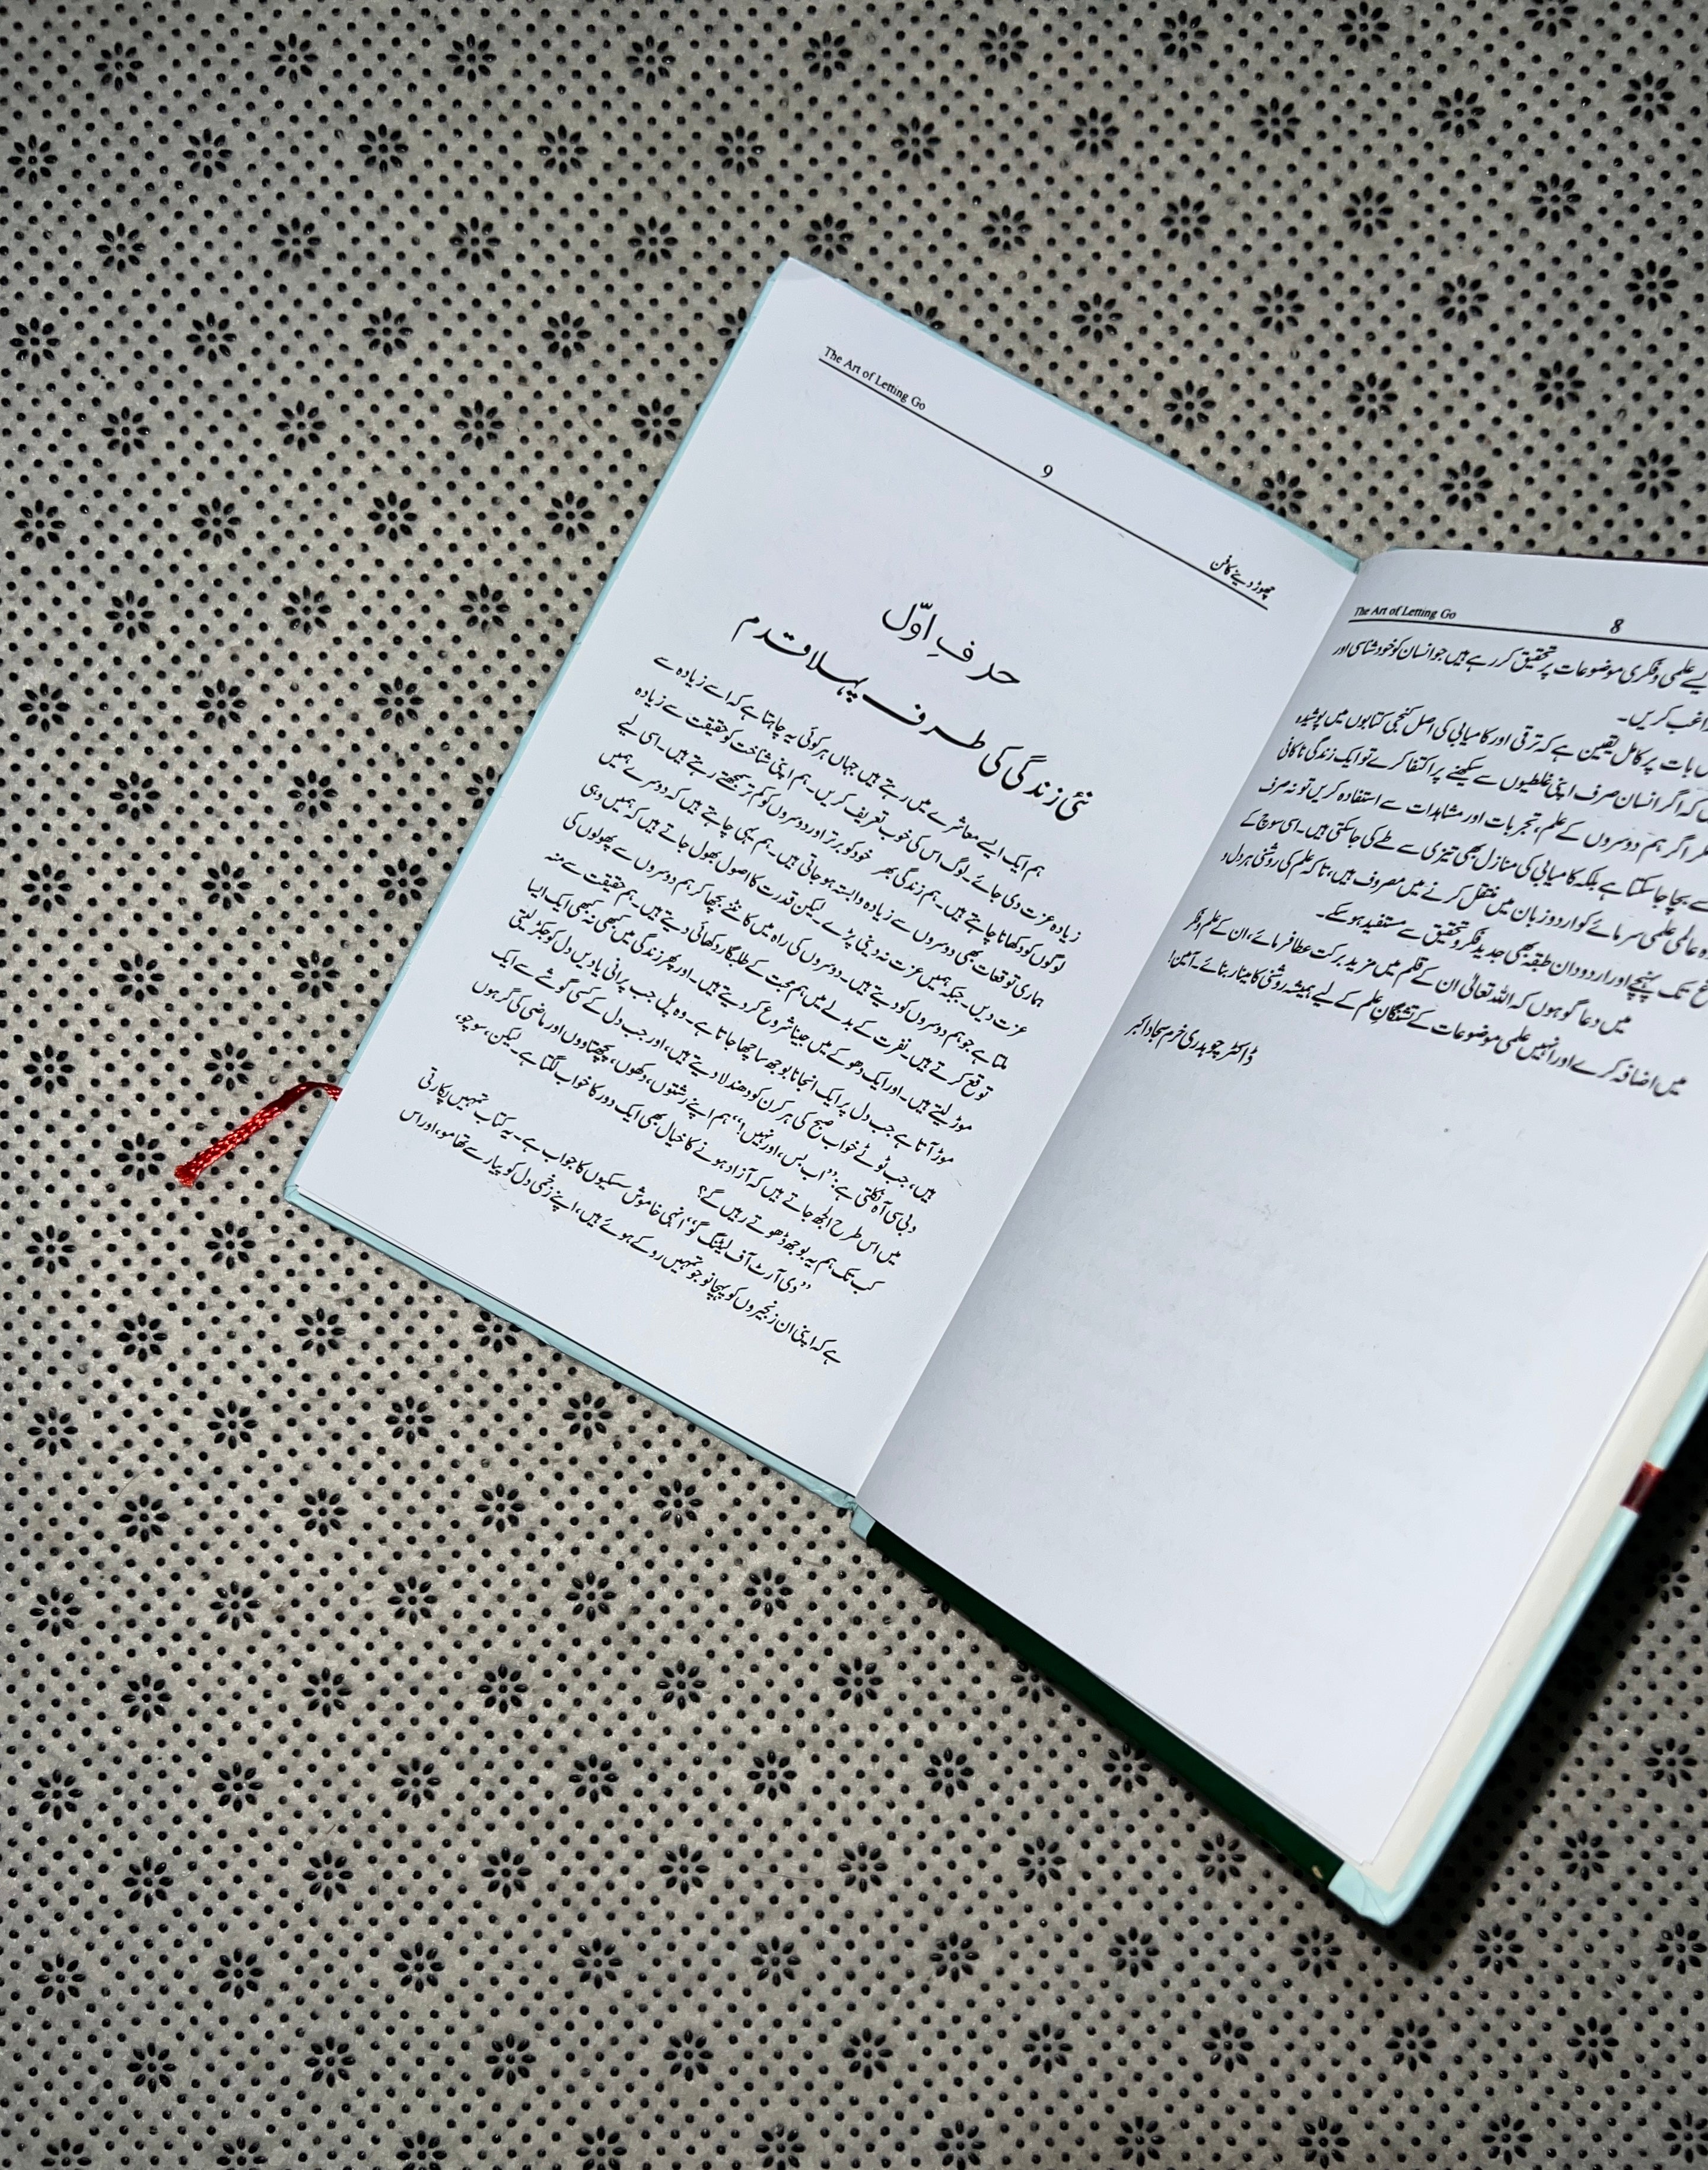 The Art of Letting Go
8
یے علمی و فکری موضوعات پر تحقیق کر رہے ہیں جو انسان کو خود شناسی اور
اغب کریں۔
بات پر کامل یقین ہے کہ ترقی اور کامیابی کی اصل کنجی کتابوں میں پوشیدہ
کہ اگر انسان صرف اپنی غلطیوں سے سیکھنے پر اکتفا کرے تو ایک زندگی ناکافی
اگر ہم دوسروں کے علم، تجربات اور مشاہدات سے استفادہ کریں تو نہ صرف
سے بچا جا سکتا ہے بلکہ کامیابی کی منازل بھی تیزی سے طے کی جا سکتی ہیں۔ اسی سوچ کے
عالمی علمی سرمائے کو اردو زبان میں منتقل کرنے میں مصروف ہیں، تاکہ علم کی روشنی ہر دل و
تک پہنچے اور اردو دان طبقہ بھی جدید فکر و تحقیق سے مستفید ہو سکے۔
میں دعا گو ہوں کہ اللہ تعالیٰ ان کے قلم میں مزید برکت عطا فرمائے، ان کے علم و فکر
میں اضافہ کرے اور انہیں علمی موضوعات کے تشنگانِ علم کے لیے ہمیشہ روشنی کا مینار بنائے۔ آمین!
ڈاکٹر چوہدری خرم سجاد اکبر
چھوڑ دینے کا فن
9
The Art of Letting Go
حرفِ اوّل
نئی زندگی کی طرف پہلا قدم
ہم ایک ایسے معاشرے میں رہتے ہیں جہاں ہر کوئی یہ چاہتا ہے کہ اسے زیادہ سے
زیادہ عزت دی جائے۔ لوگ اس کی خوب تعریف کریں۔ ہم اپنی شناخت کو حقیقت سے زیادہ
لوگوں کو دکھانا چاہتے ہیں۔ ہم زندگی بھر خود کو برتر اور دوسروں کو کم تر سمجھتے رہتے ہیں۔ اسی لیے
ہماری توقعات بھی دوسروں سے زیادہ وابستہ ہو جاتی ہیں۔ ہم یہی چاہتے ہیں کہ دوسرے ہمیں
عزت دیں۔ جبکہ ہمیں عزت نہ دینی پڑے۔ لیکن قدرت کا اصول بھول جاتے ہیں کہ ہمیں وہی
ملتا ہے جو ہم دوسروں کو دیتے ہیں۔ دوسروں کی راہ میں کانٹے بچھا کر ہم دوسروں سے پھولوں کی
توقع کرتے ہیں۔ نفرت کے بدلے میں ہم محبت کے طلبگار دکھائی دیتے ہیں۔ ہم حقیقت سے منہ
موڑ لیتے ہیں۔ اور ایک دھوکے میں جینا شروع کر دیتے ہیں۔ اور پھر زندگی میں کبھی نہ کبھی ایک ایسا
موڑ آتا ہے جب دل پر ایک انجانا بوجھ سا چھا جاتا ہے۔ وہ پل جب پرانی یادیں دل کو جکڑ لیتی
ہیں، جب ٹوٹے خواب صبح کی ہر کرن کو دھندلا دیتے ہیں، اور جب دل کے کسی گوشے سے ایک
دبی سی آہ نکلتی ہے: ”اب بس، اور نہیں!“ ہم اپنے رشتوں، دکھوں، پچھتاووں اور ماضی کی گرہوں
میں اس طرح الجھ جاتے ہیں کہ آزاد ہونے کا خیال بھی ایک دور کا خواب لگتا ہے۔ لیکن، سوچو،
کب تک ہم یہ بوجھ ڈھوتے رہیں گے؟
”دی آرٹ آف لیٹنگ گو“ انہی خاموش سسکیوں کا جواب ہے۔ یہ کتاب تمہیں پکارتی
ہے کہ اپنی ان زنجیروں کو پہچانو جو تمہیں روکے ہوئے ہیں، اپنے زخمی دل کو پیار سے تھامو، اور اس